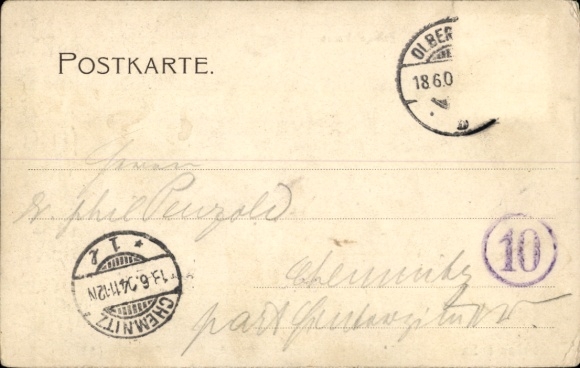 POSTKARTE.
OLBER
18.6.0
Herrn
Dr. phil Penzold
10
Chemnitz
* 1 *
13.6.04.11-12N
CHEMNITZ